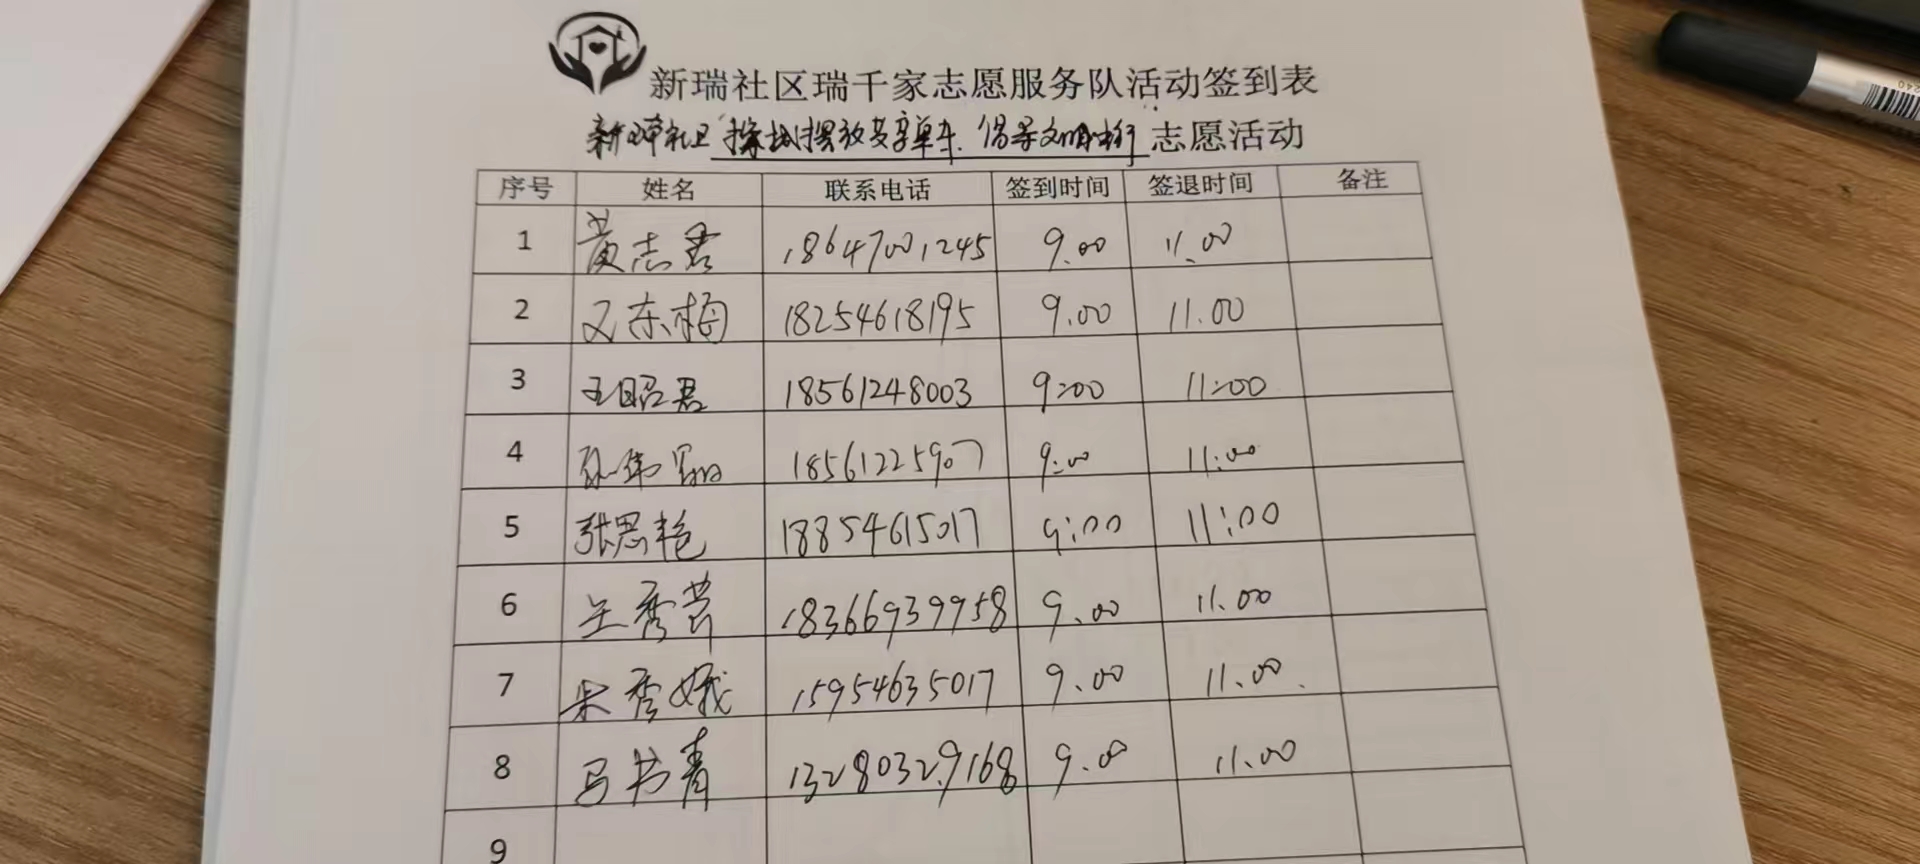 新瑞社区瑞千家志愿服务队活动签到表
新瑞社区 摆放共享单车、倡导文明出行 志愿活动
序号 姓名 联系电话 签到时间 签退时间 备注
1 黄志君 18647001245 9.00 11.00
2 又东梅 18254618195 9.00 11.00
3 王昭君 18561248003 9:00 11:00
4 18561225907 9:00 11:00
5 张思艳 18854615017 9:00 11:00
6 王秀芳 18366939958 9.00 11.00
7 宋秀娥 15954635017 9.00 11.00
8 马书青 13280329168 9.00 11.00
9